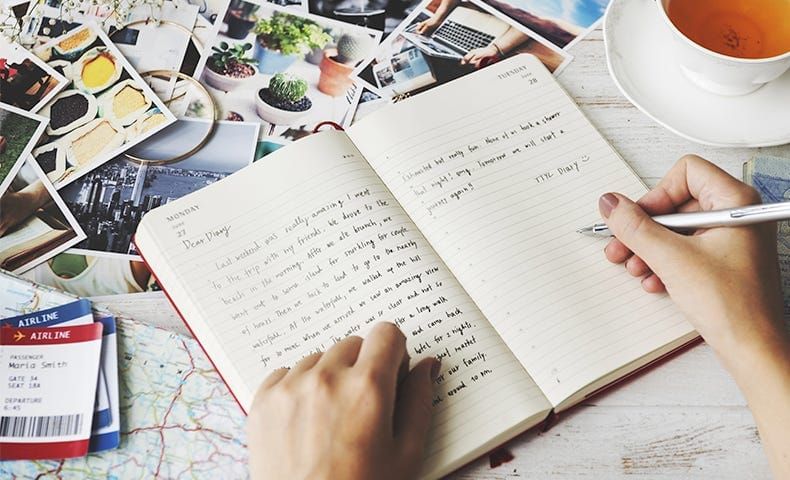 MONDAY
JUNE
27
Dear Diary
Last weekend was really amazing I went
to the trip with my friends. We drove to the
beach in the morning. After we ate brunch, we
went out to some island for snorkling for couple
of hours. Then we back to land to go to the nearby
waterfall. At the waterfall, we walked up the hill
for so more when we arrived we saw an amazing view
The water was so clear and not so
after a long walk
and came back
hotel for 2 nights.
market
for our family.
around 10 PM.
TUESDAY
JUNE
28
Exhausted but really fun. None of us took a shower
that night! omg. Tomorrow we will start a
journey again!!
TTYL Diary
AIRLINE
AIRLINE
PASSENGER
Maria Smith
GATE 34
SEAT 18A
DEPARTURE
6:45